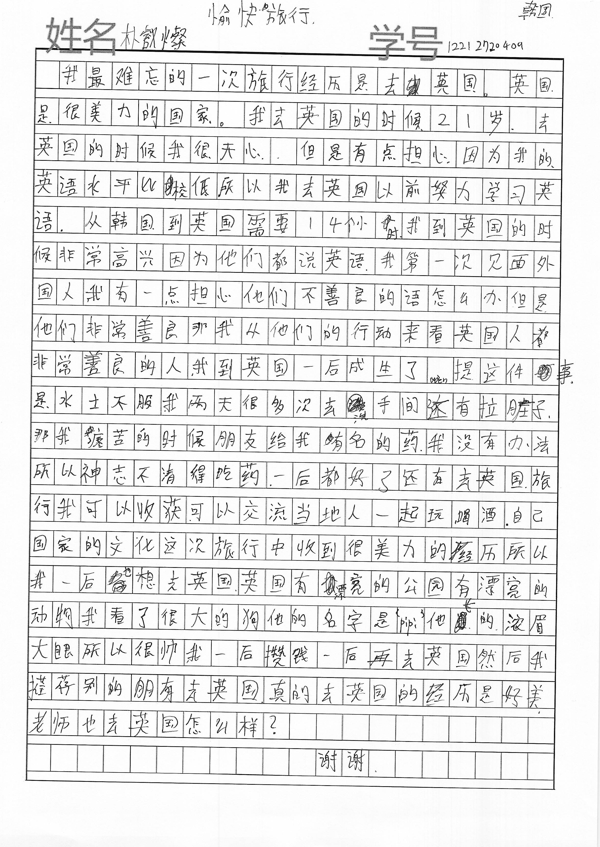 愉快旅行. 韩国
姓名 朴叡燦 学号 12212720409
我最难忘的一次旅行经历是去英国。英国
是很美力的国家。我去英国的时候21岁.去
英国的时候我很天心.但是有点担心.因为我的
英语水平比较低所以我去英国以前努力学习英
语.从韩国到英国需要14个小时.我到英国的时
候非常高兴因为他们都说英语.我第一次见面外
国人我有一点担心他们不善良的话怎么办但是
他们非常善良那我从他们的行动来看英国人都
非常善良的人我到英国一后成生了 提这件事
是水土不服我两天很多次去洗手间还有拉肚子.
那我 苦的时候朋友给我 名的药.我没有办法
所以神志不清得吃药.一后都好了还有去英国旅
行我可以收获可以交流当地人一起玩喝酒.自己
国家的文化这次旅行中收到很美力的经历所以
我一后也想去英国.英国有漂亮的公园有漂亮的
动物我看了很大的狗他的名字是“帅”他长的.浓眉
大眼所以很帅我一后攒钱一后再去英国然后我
推荐别的朋有去英国真的去英国的经历是好美.
老师也去英国怎么样？
谢谢.